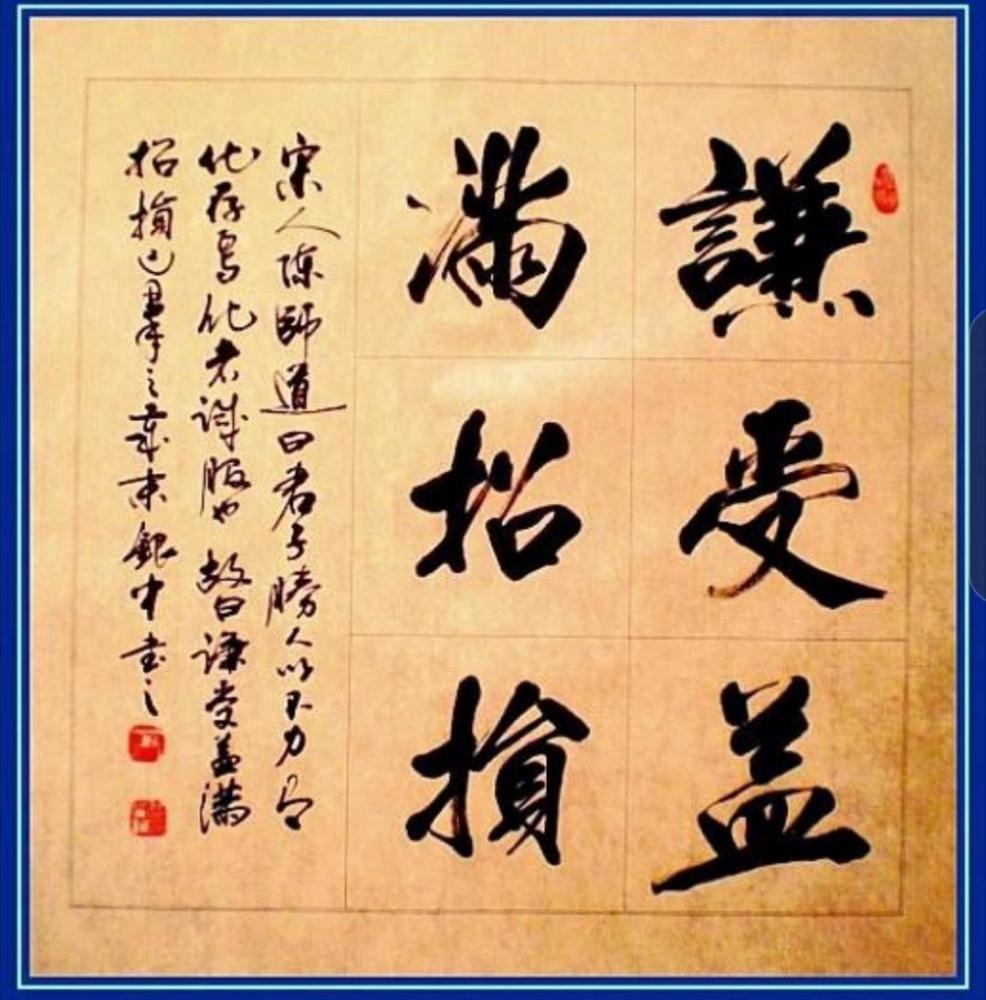 謙受益
滿招損
宋人陳師道曰君子勝人以不力有
化存焉化者誠服也故曰謙受益滿
招損之歲末銀中書之